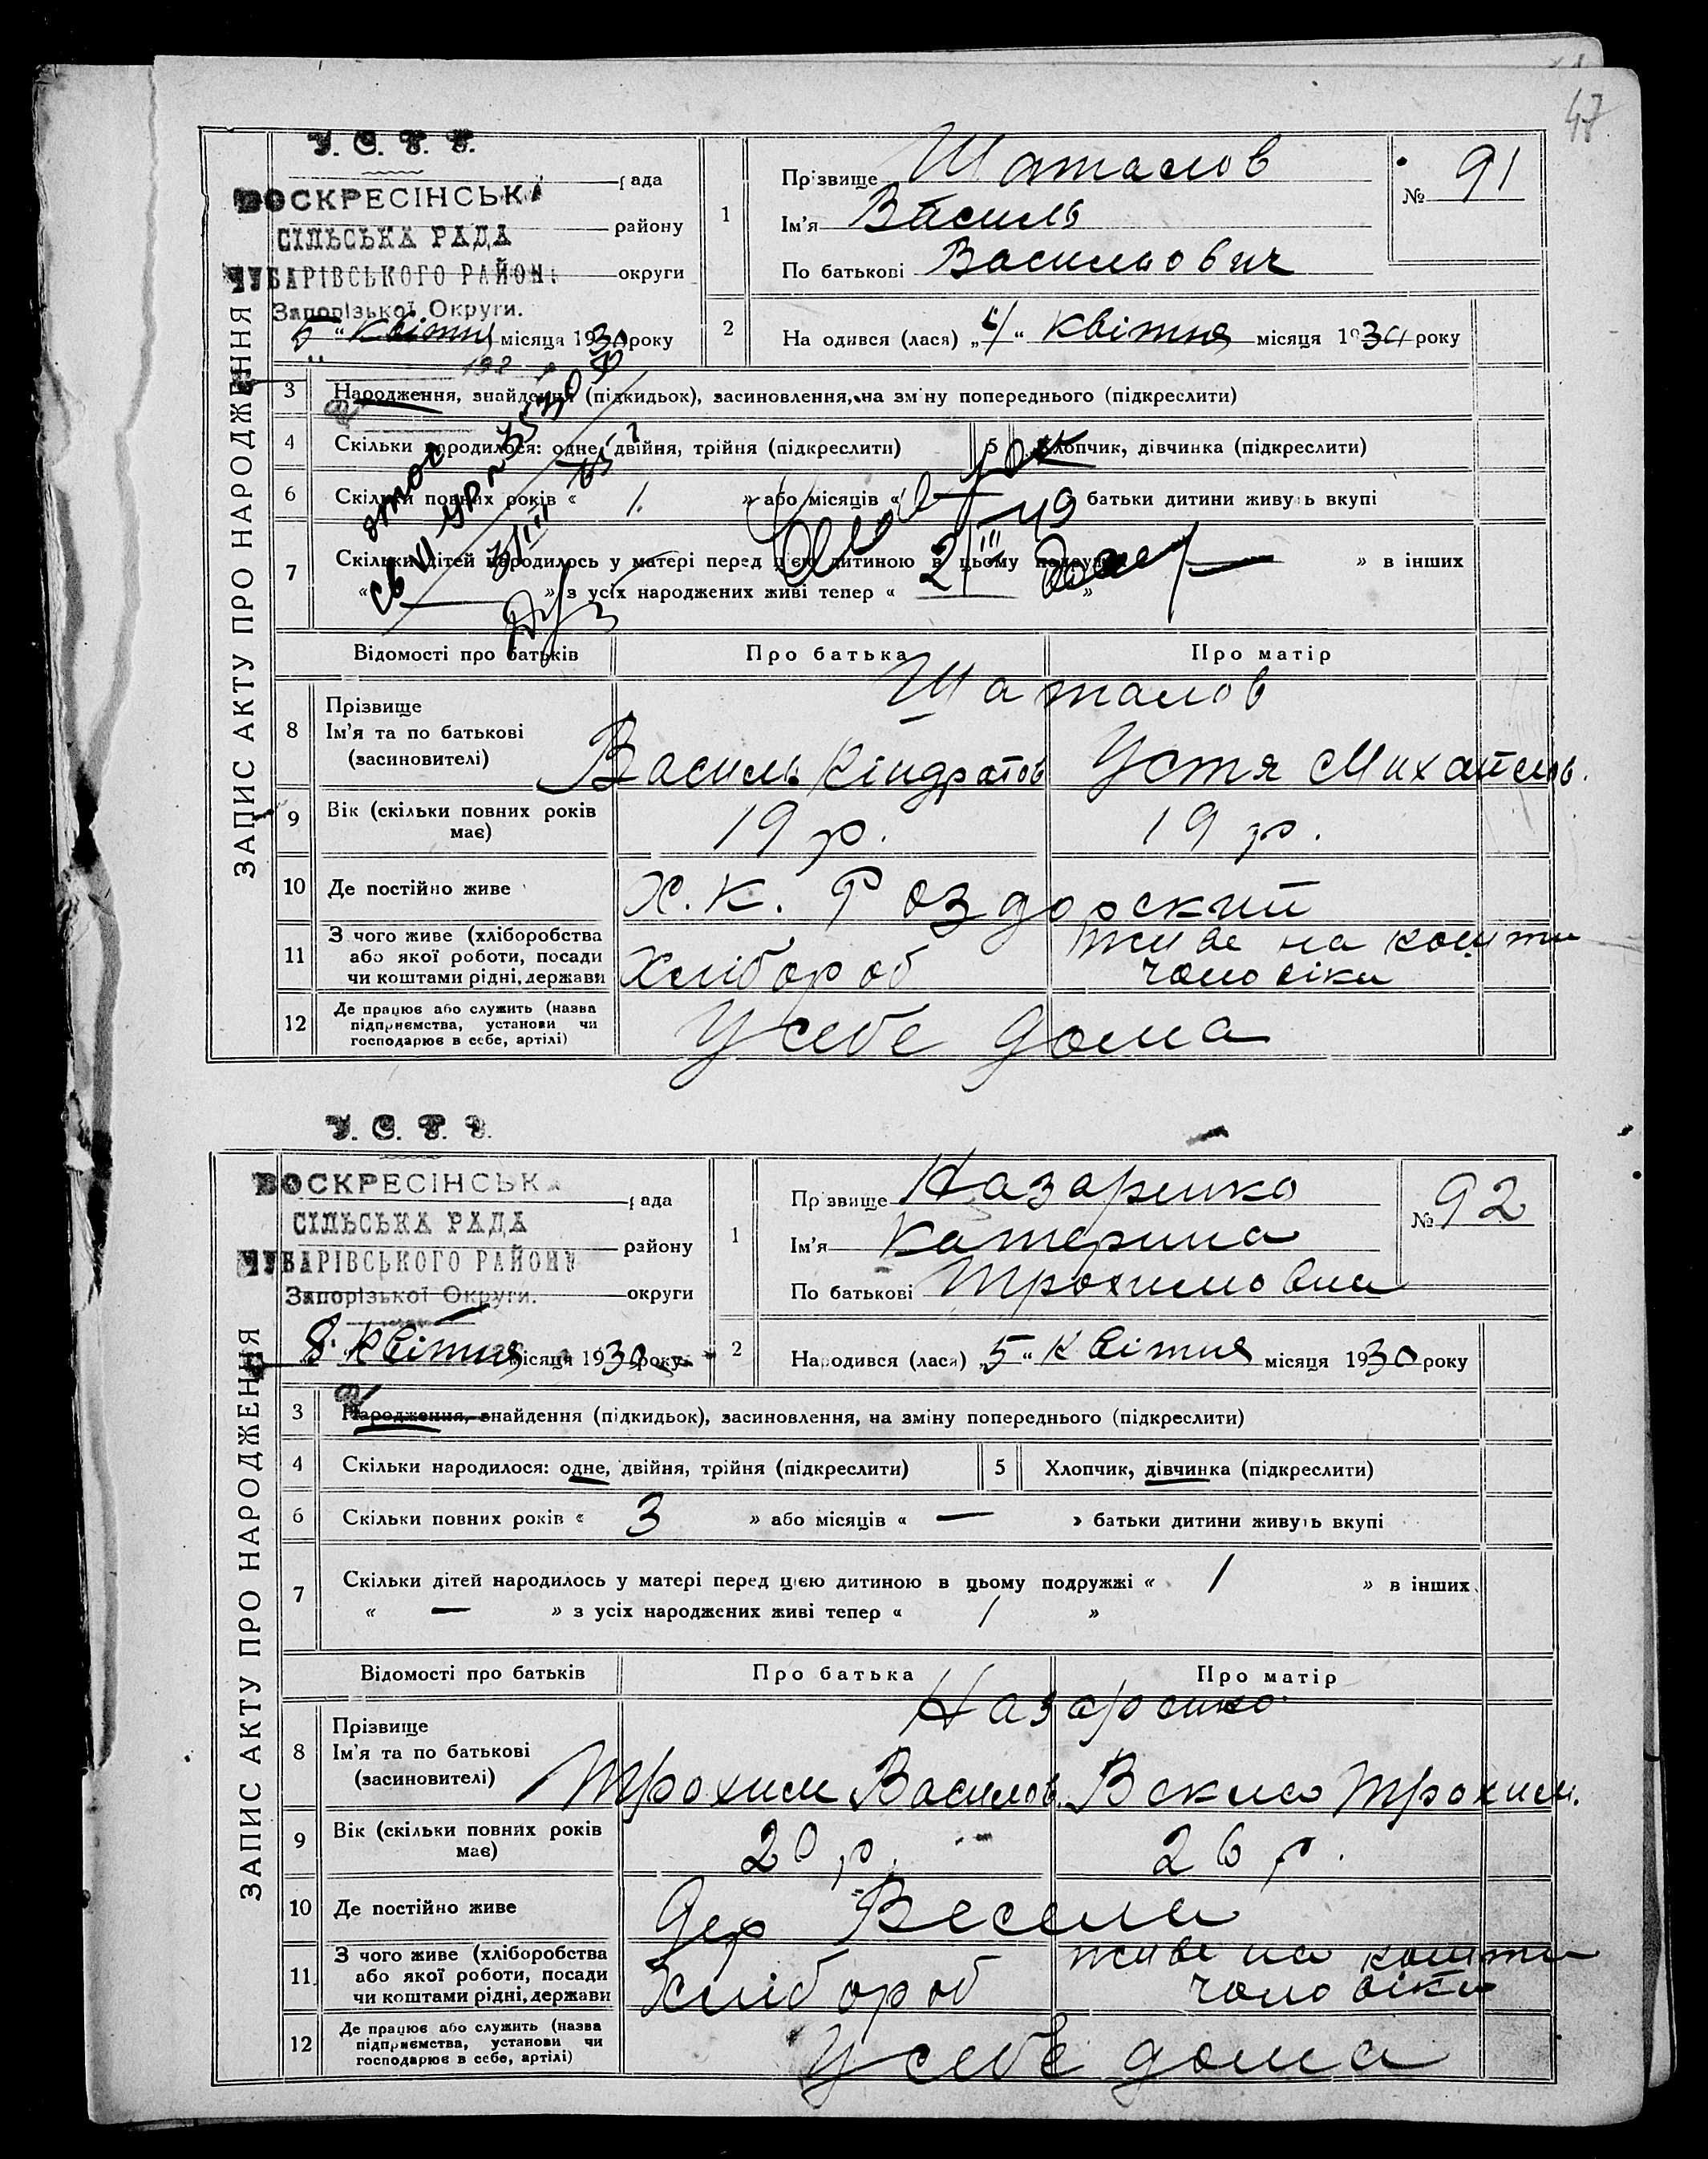 47
У. С. Р. Р.
рада
ВОСКРЕСІНСЬКА
СІЛЬСЬКА РАДА
району
ЧУБАРІВСЬКОГО РАЙОНУ
округи
Запорізької Округи.
5 " квітня місяця 1930 року
ЗАПИС АКТУ ПРО НАРОДЖЕННЯ
1 Прізвище Шаталов
Ім'я Василь
По батькові Васильович
№ 91
2 Народився (лася) „4“ квітня місяця 1930 року
3 Народження, знайдення (підкидьок), засиновлення, на зміну попереднього (підкреслити)
4 Скільки народилося: одне, двійня, трійня (підкреслити)
5 Хлопчик, дівчинка (підкреслити)
6 Скільки повних років « 1 » або місяців « » батьки дитини живуть вкупі
7 Скільки дітей народилось у матері перед цією дитиною в цьому подружжі » в інших
« — » з усіх народжених живі тепер « »
Відомості про батьків Про батька Про матір
8 Прізвище
Ім'я та по батькові
(засиновителі)
Шаталов
Василь Кіндратов Устя Михайлов.
9 Вік (скільки повних років
має)
19 р. 19 р.
10 Де постійно живе Х. К. Роздорский
11 З чого живе (хліборобства
або якої роботи, посади
чи коштами рідні, держави
Хлібороб живе на кошти
чоловіка
12 Де працює або служить (назва
підприємства, установи чи
господарює в себе, артілі)
У себе дома
У. С. Р. Р.
ВОСКРЕСІНСЬКА
рада
СІЛЬСЬКА РАДА
району
ЧУБАРІВСЬКОГО РАЙОНУ
Запорізької Округи.
округи
8 " квітня місяця 1930 року
ЗАПИС АКТУ ПРО НАРОДЖЕННЯ
1 Прізвище Назаренко
Ім'я Катерина
По батькові Трохимовна
№ 92
2 Народився (лася) „5“ квітня місяця 1930 року
3 Народження, знайдення (підкидьок), засиновлення, на зміну попереднього (підкреслити)
4 Скільки народилося: одне, двійня, трійня (підкреслити)
5 Хлопчик, дівчинка (підкреслити)
6 Скільки повних років « 3 » або місяців « — » батьки дитини живуть вкупі
7 Скільки дітей народилось у матері перед цією дитиною в цьому подружжі « 1 » в інших
« — » з усіх народжених живі тепер « 1 »
Відомості про батьків Про батька Про матір
8 Прізвище
Ім'я та по батькові
(засиновителі)
Назаренко
Трохим Василов. Векла Трохим.
9 Вік (скільки повних років
має)
20 р. 26 р.
10 Де постійно живе Дер Весела
11 З чого живе (хліборобства
або якої роботи, посади
чи коштами рідні, держави
Хлібороб живе на кошти
чоловіка
12 Де працює або служить (назва
підприємства, установи чи
господарює в себе, артілі)
У себе дома